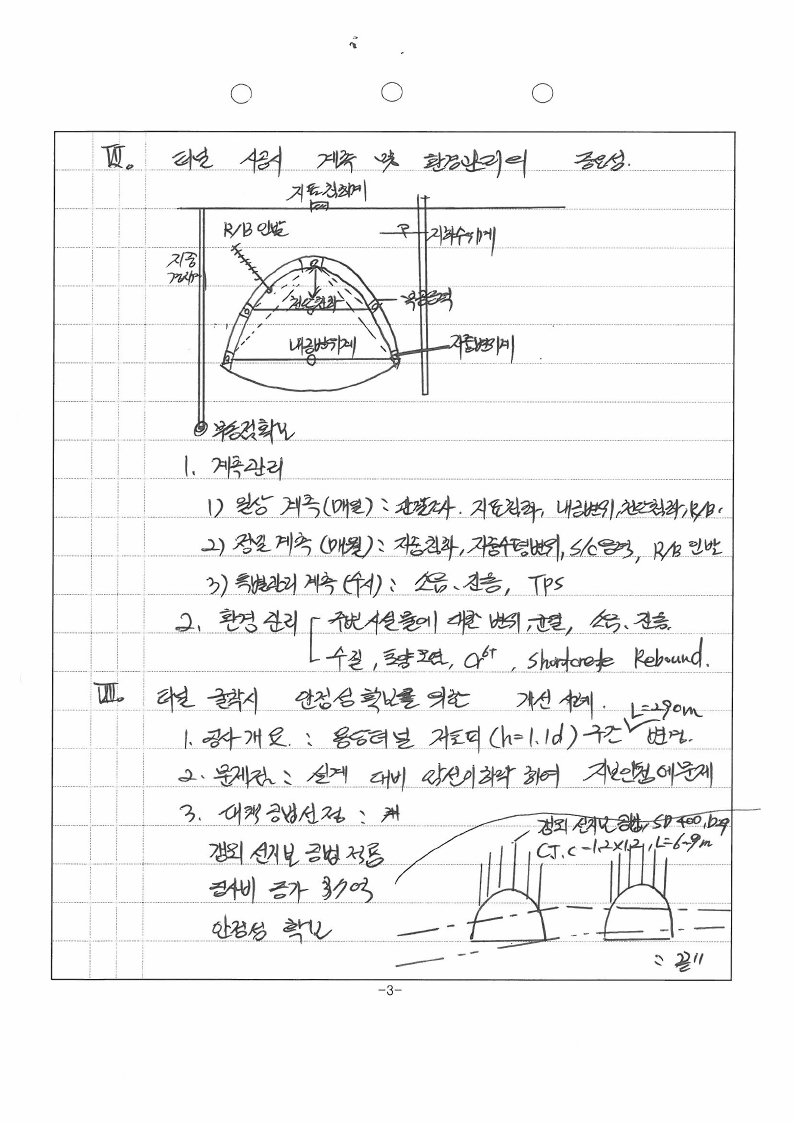 Ⅶ. 터널 시공시 계측 및 환경관리의 중요성.
지표침하계
R/B 인발
지중
경사계
P
지하수위계
천단침하
록볼응력
내공변위계
지중변위계
부동점확보
1. 계측관리
1) 일상 계측(매일) : 관찰조사. 지표침하, 내공변위, 천단침하, R/B.
2) 정밀 계측 (매월) : 지중침하, 지중수평변위, S/C응력, R/B 인발
3) 특별관리 계측 (수시) : 소음.진동, TPS
2. 환경관리 주변시설물에 대한 변위, 균열, 소음.진동.
수질, 토양오염, Cr6+, Shortcrete Rebound.
Ⅷ. 터널 굴착시 안정성 확보를 위한 개선 사례.
L=290m
1. 공사개요. : 용승터널 저토피 (h=1.1d) 구간 변경.
2. 문제점 : 설계 대비 암선의하락 하여 지보안정에문제
3. 대책공법선정 :
갱외 선지보 공법, SD400, D29
갱외 선지보 공법 적용
C.T.C-1.2×1.2, L=6~9m
공사비 증가 약7억
안정성 확보
: 끝"
-3-